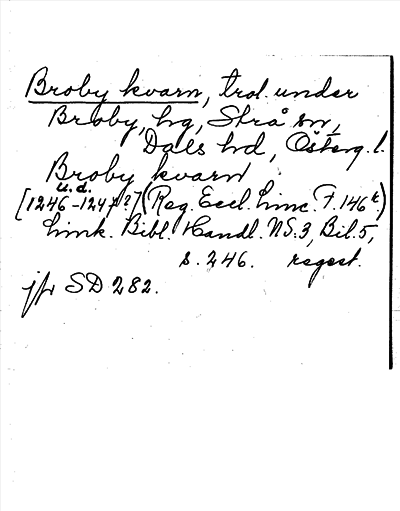 Broby kvarn, trol. under
Broby, hg, Strå sn,
Dals hd, Österg. l.
Broby kvarn
u.d.
[1246-1247?] (Reg. Eccl. Linc. F. 146v)
Link. Bibl. Handl. NS:3, Bil. 5,
s. 246. regest.
jfr SD 282.